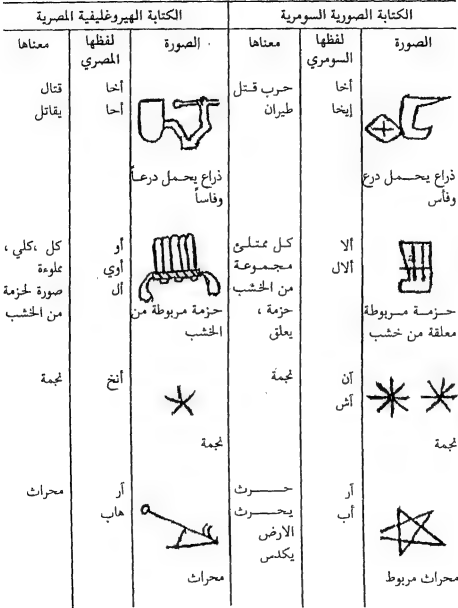 الكتابة الصورية السومرية
الكتابة الهيروغليفية المصرية
الصورة
لفظها السومري
معناها
الصورة
لفظها المصري
معناها
ذراع يحمل درع
وفأس
أخا
إيخا
حرب قتل
طيران
ذراع يحمل درعاً
وفاساً
أخا
أحا
قتال
يقاتل
حزمة مربوطة
معلقة من خشب
ألا
ألال
كل ممتلئ
مجموعة
من الخشب
حزمة ،
يعلق
حزمة مربوطة من
الخشب
أو
أوي
أل
كل ،كلي ،
مملوءة
صورة لحزمة
من الخشب
نجمة
آن
آش
نجمة
نجمة
أنخ
نجمة
محراث مربوط
آر
أب
حرث
يحرث
الارض
يكدس
محراث
آر
هاب
محراث